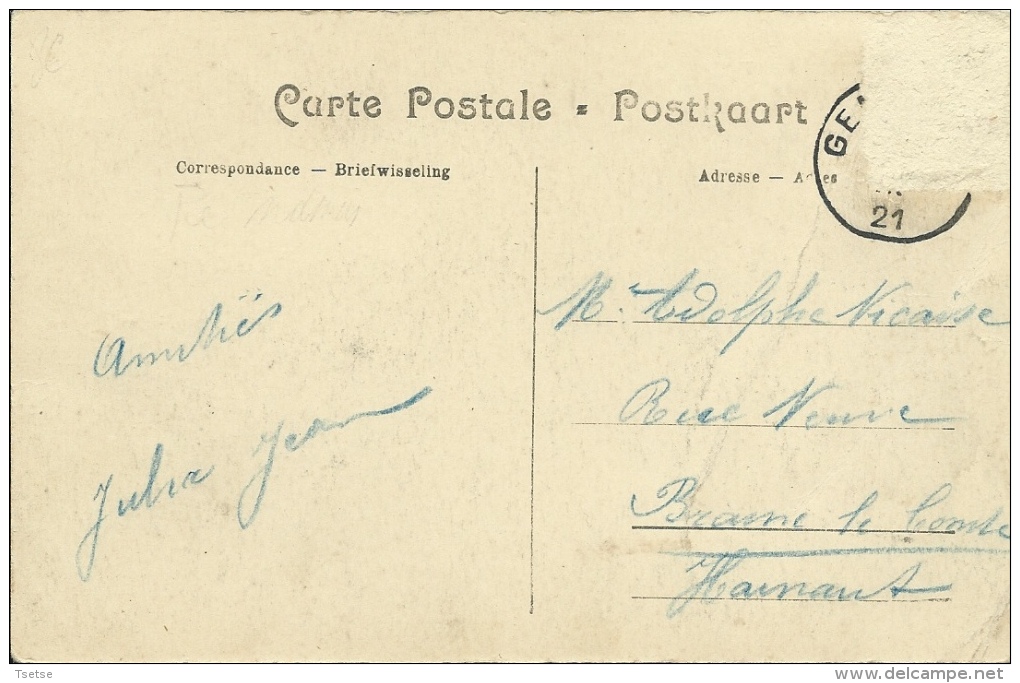 Carte Postale = Postkaart
Correspondance — Briefwisseling
Adresse — Adres
GE
21
Amitiés
Julia Jean
Mr Adolphe Nicaise
Rue Neuve
Braine le Comte
Hainaut
Tsetse
www.delcampe.net